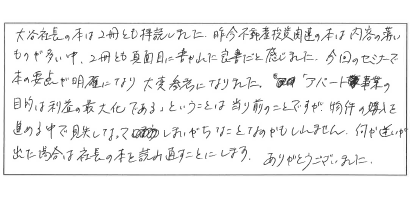 大谷社長の本は2冊とも拝読しました。昨今不動産投資関連の本は内容の薄い
ものが多い中、2冊とも真面目に書かれた良書だと感じました。今回のセミナーで
本の要点が明確になり大変参考になりました。「アパート事業の
目的は利益の最大化である」ということは当り前のことですが、物件の購入を
進める中で見失しなってしまいがちなことなのかもしれません。何か迷いが
出た場合は社長の本を読み直すことにします。ありがとうございました。